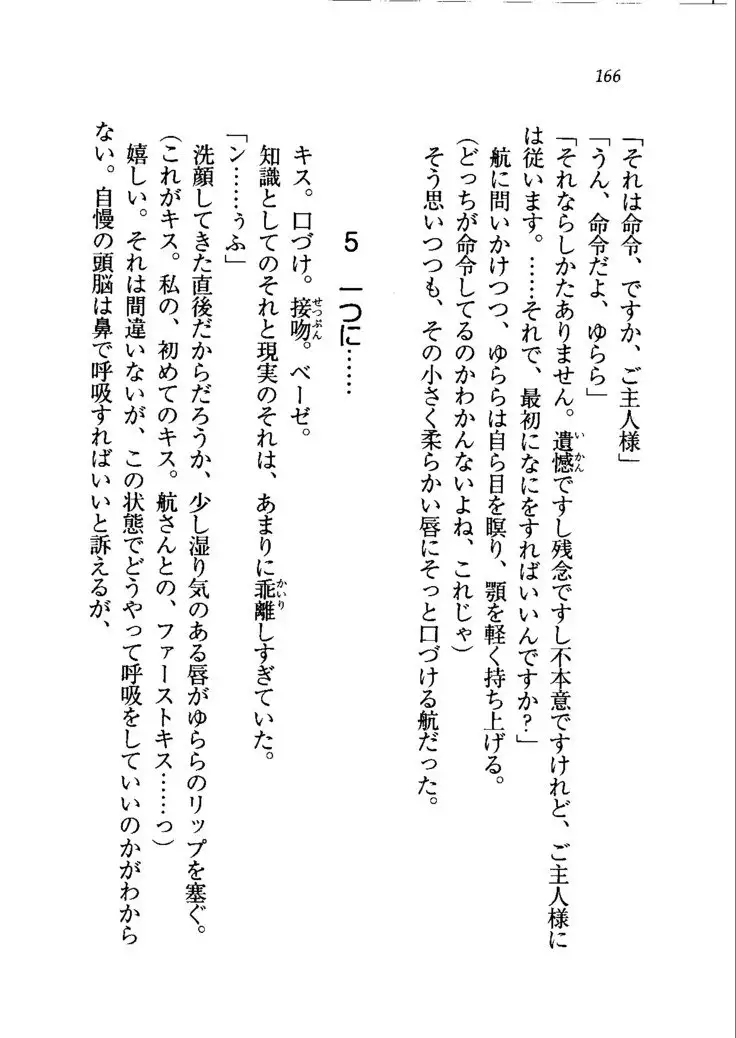 166
「それは命令、ですか、ご主人様」
「うん、命令だよ、ゆらら」
「それならしかたありません。遺憾ですし残念ですし不本意ですけれど、ご主人様に
は従います。……それで、最初になにをすればいいんですか?」
航に問いかけつつ、ゆららは自ら目を瞑り、顎を軽く持ち上げる。
(どっちが命令してるのかわかんないよね、これじゃ)
そう思いつつも、その小さく柔らかい唇にそっと口づける航だった。
5 一つに……
キス。口づけ。接吻。ベーゼ。
知識としてのそれと現実のそれは、あまりに乖離しすぎていた。
「ン……ぅふ」
洗顔してきた直後だからだろうか、少し湿り気のある唇がゆららのリップを塞ぐ。
(これがキス。私の、初めてのキス。航さんとの、ファーストキス……っ)
嬉しい。それは間違いないが、この状態でどうやって呼吸をしていいのかがわから
ない。自慢の頭脳は鼻で呼吸すればいいと訴えるが、